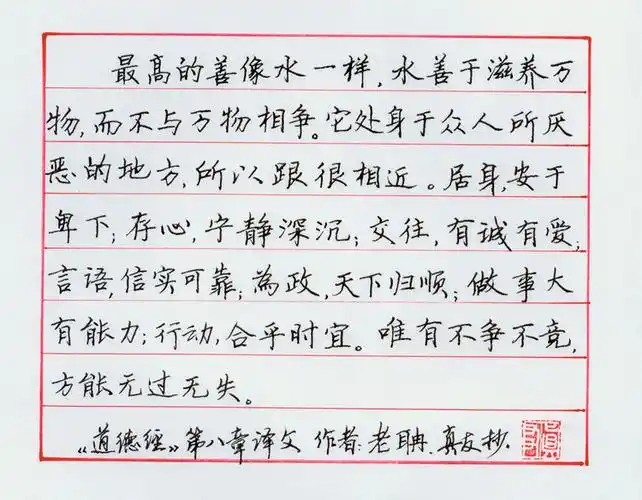 最高的善像水一样,水善于滋养万
物,而不与万物相争。它处身于众人所厌
恶的地方,所以跟很相近。居身,安于
卑下;存心,宁静深沉;交往,有诚有爱;
言语,信实可靠;為政,天下归顺;做事大
有能力;行动,合乎时宜。唯有不争不竞,
方能无过无失。
《道德经》第八章译文 作者:老聃.真友抄.